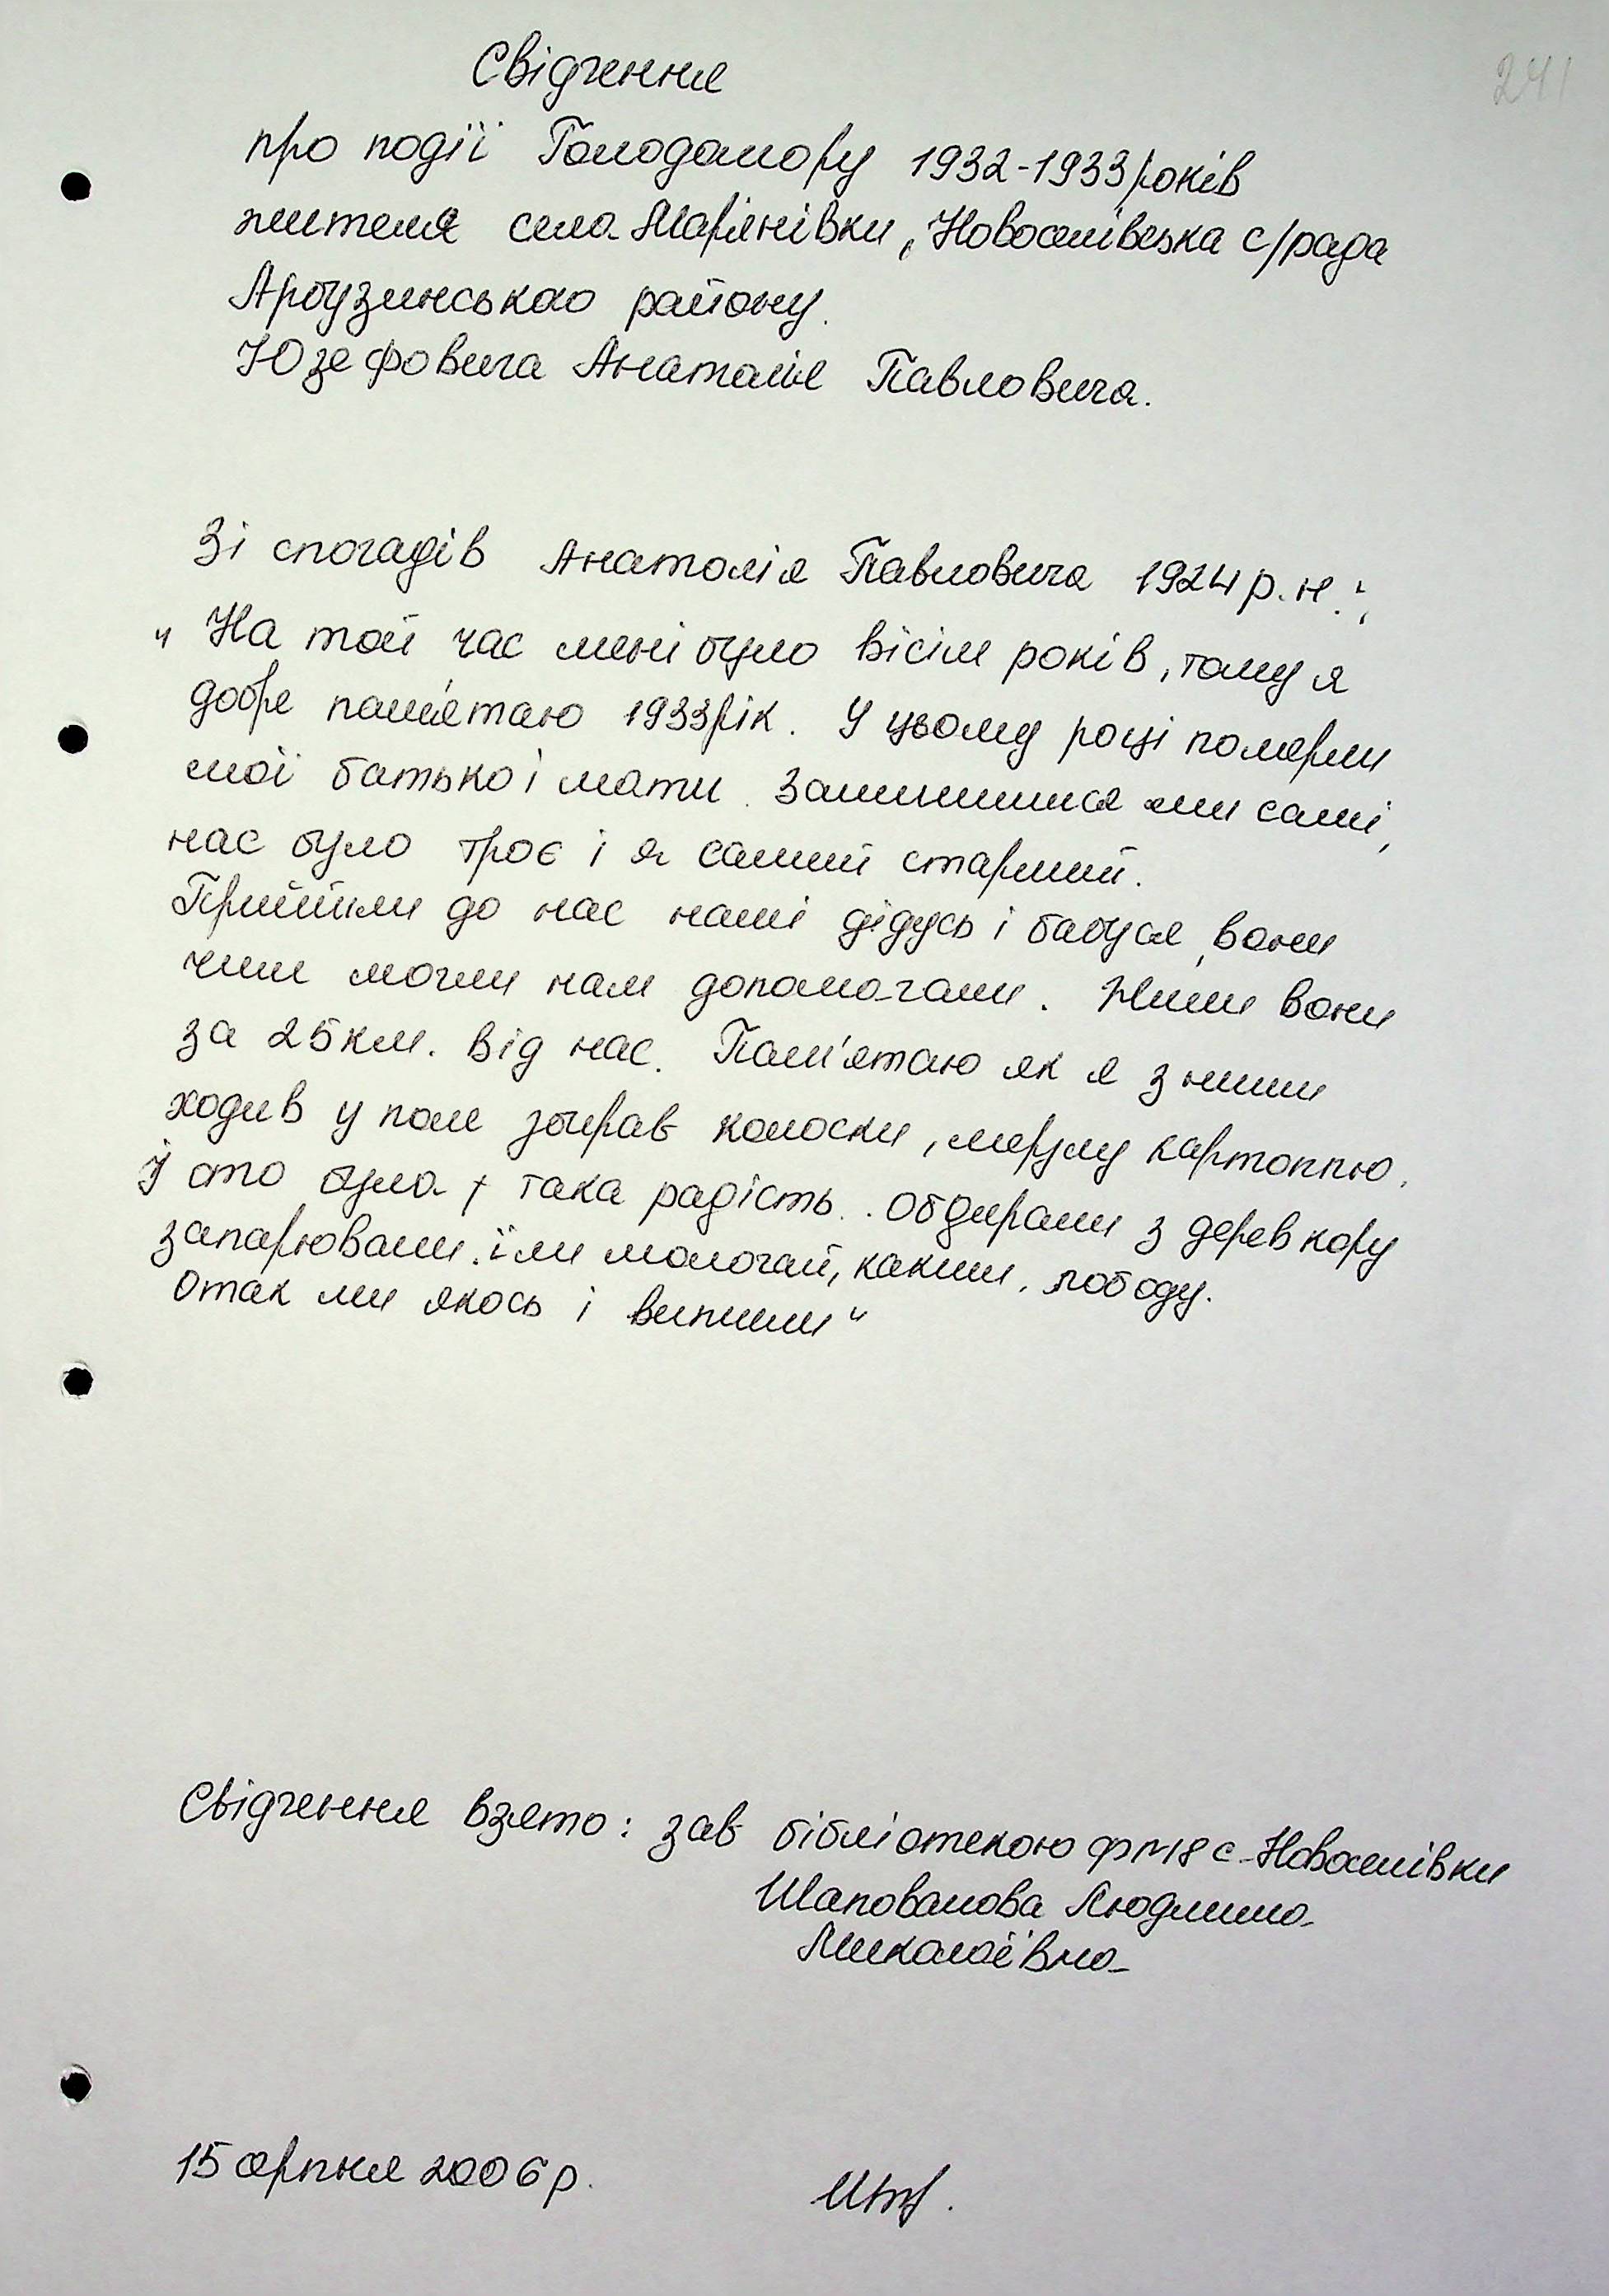 241
Свідчення
про події Голодомору 1932-1933 років
жителя села Мар'янівки, Новоселівська с/рада
Арбузинського району.
Юзефовича Анатолія Павловича.
Зі спогадів Анатолія Павловича 1924 р.н.:
"На той час мені було вісім років, тому я
добре пам'ятаю 1933 рік. У цьому році померли
мої батько і мати. Залишилися ми самі,
нас було троє і я самий старший.
Прийшли до нас наші дідусь і бабуся, вони
чим могли нам допомогали. Жили вони
за 25 км. від нас. Пам'ятаю як я з ними
ходив у поле збирав колоски, мерзлу картоплю.
І ото була така радість.. Обдирали з дерев кору
запарювали. їли молочай, какиш, лободу.
Отак ми якось і вижили"
Свідчення взято: зав бібліотекою ф№18 с. Новоселівки
Шаповалова Людмила
Миколаївна
15 серпня 2006 р.